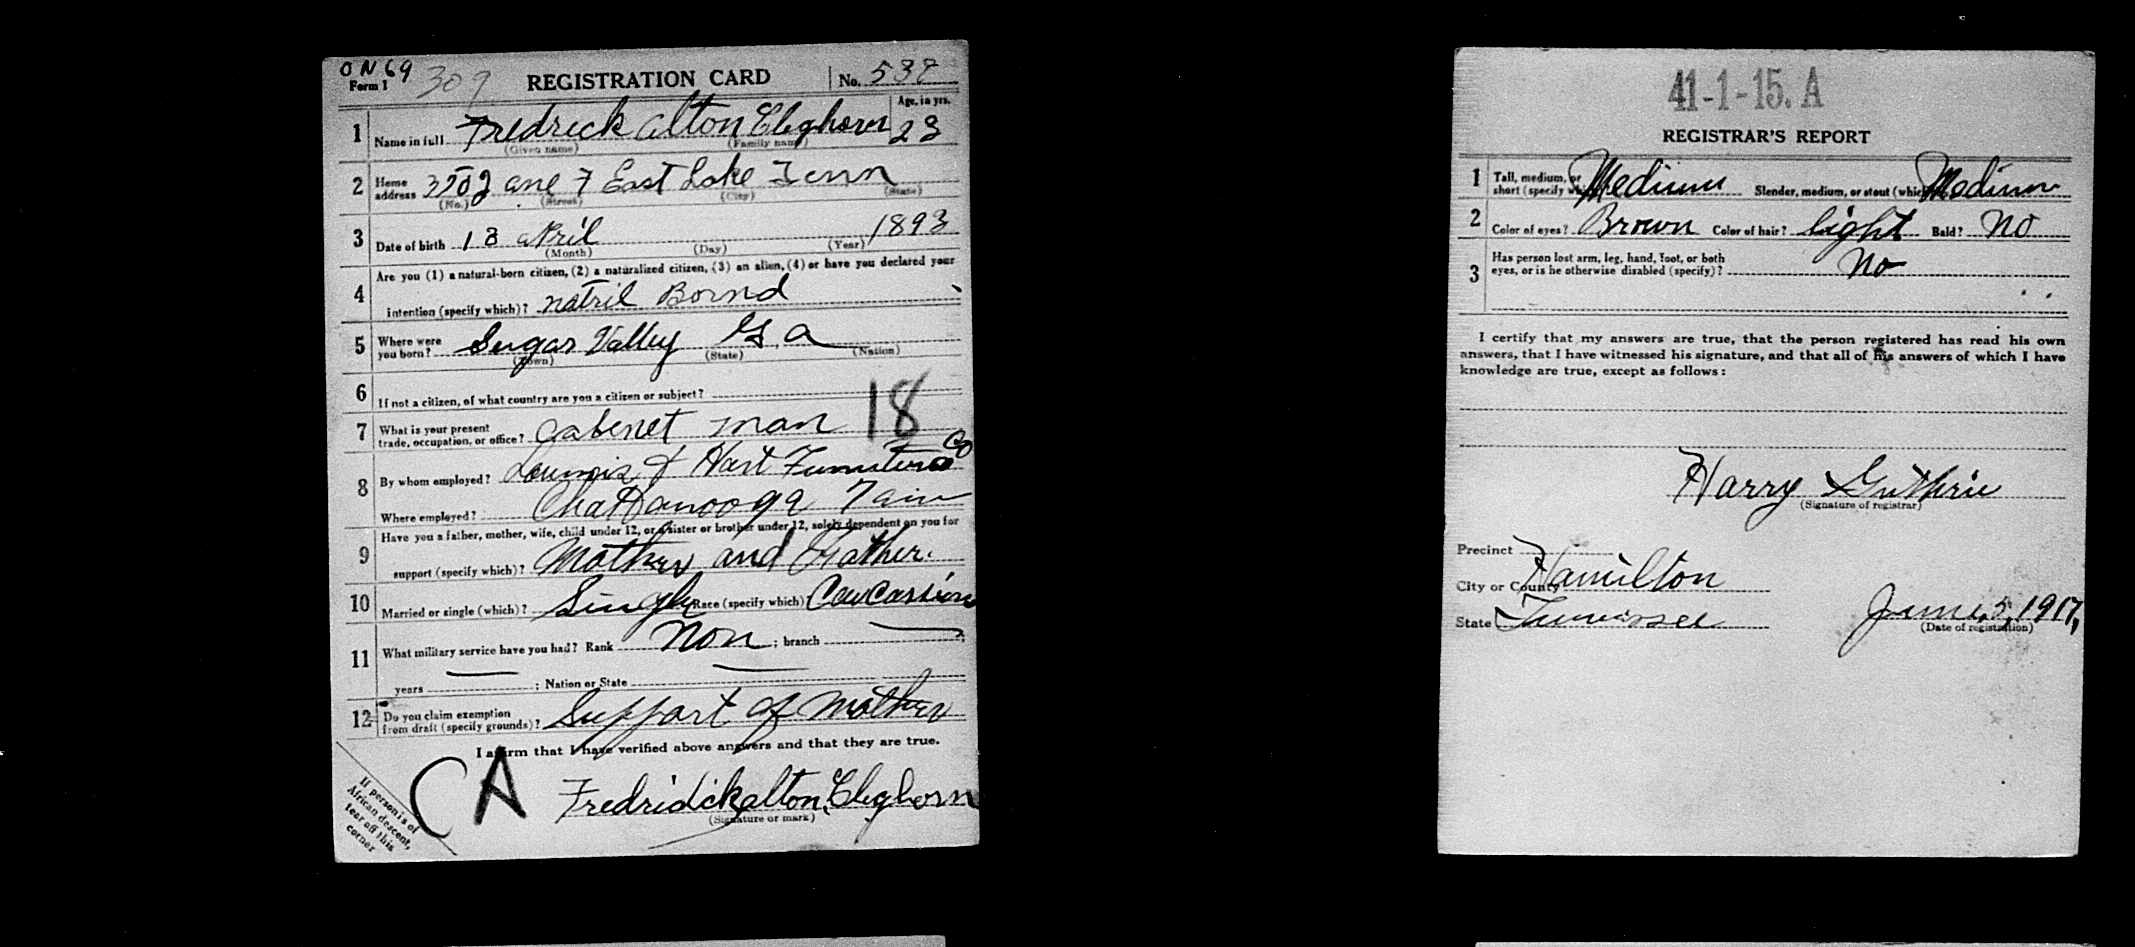 O N 69
Form 1 309 REGISTRATION CARD No. 538
Age, in yrs.
1 Name in full Fredreck alton Cleghorn 23
(Given name) (Family name)
2 Home address 3502 ave 7 East Lake Tenn
(No.) (Street) (City) (State)
3 Date of birth 13 april 1893
(Month) (Day) (Year)
4 Are you (1) a natural-born citizen, (2) a naturalized citizen, (3) an alien, (4) or have you declared your
intention (specify which)? natril Bornd
5 Where were you born? Sugar Valley Ga
(Town) (State) (Nation)
6 If not a citizen, of what country are you a citizen or subject?
18
7 What is your present trade, occupation, or office? Cabenet man
8 By whom employed? & Hart Furniture Co
Where employed? Chattanooga
Have you a father, mother, wife, child under 12, or a sister or brother under 12, solely dependent on you for
9 support (specify which)? Mother and Father.
10 Married or single (which)? Single Race (specify which)? Caucassion
11 What military service have you had? Rank Non ; branch
years ; Nation or State
12 Do you claim exemption from draft (specify grounds)? Support of Mother
I affirm that I have verified above answers and that they are true.
CA
Fredridck alton Cleghorn
(Signature or mark)
If person is of
African descent,
tear off this
corner
41-1-15. A
REGISTRAR'S REPORT
1 Tall, medium, or short (specify which)? Medium Slender, medium, or stout (which)? Medium
2 Color of eyes? Brown Color of hair? light Bald? No
3 Has person lost arm, leg, hand, foot, or both
eyes, or is he otherwise disabled (specify)? No
I certify that my answers are true, that the person registered has read his own
answers, that I have witnessed his signature, and that all of his answers of which I have
knowledge are true, except as follows:
Harry Guthrie
(Signature of registrar)
Precinct
City or County Hamilton
State Tennessee June, 5, 1917,
(Date of registration)